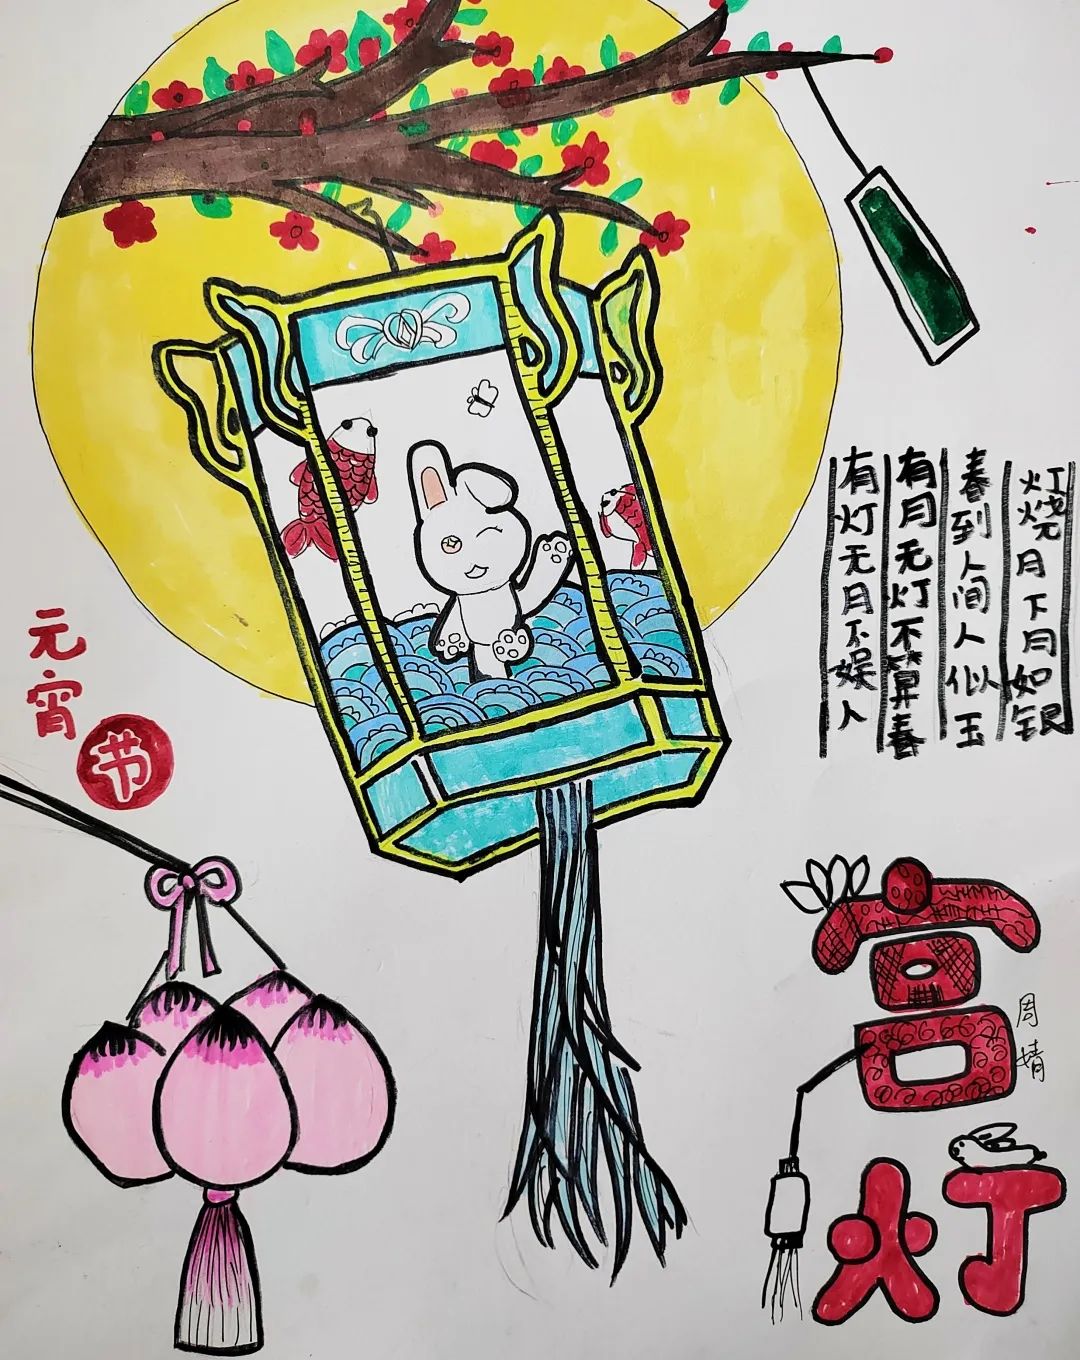 元宵节
有灯无月不娱人
有月无灯不算春
春到人间人似玉
灯烧月下月如银
宫灯
周婧